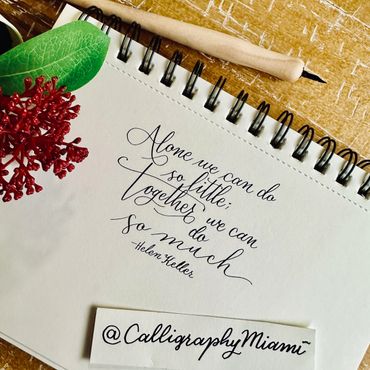 Alone we can do
so little;
Together we can
do
so much
-Helen Keller
@CalligraphyMiami